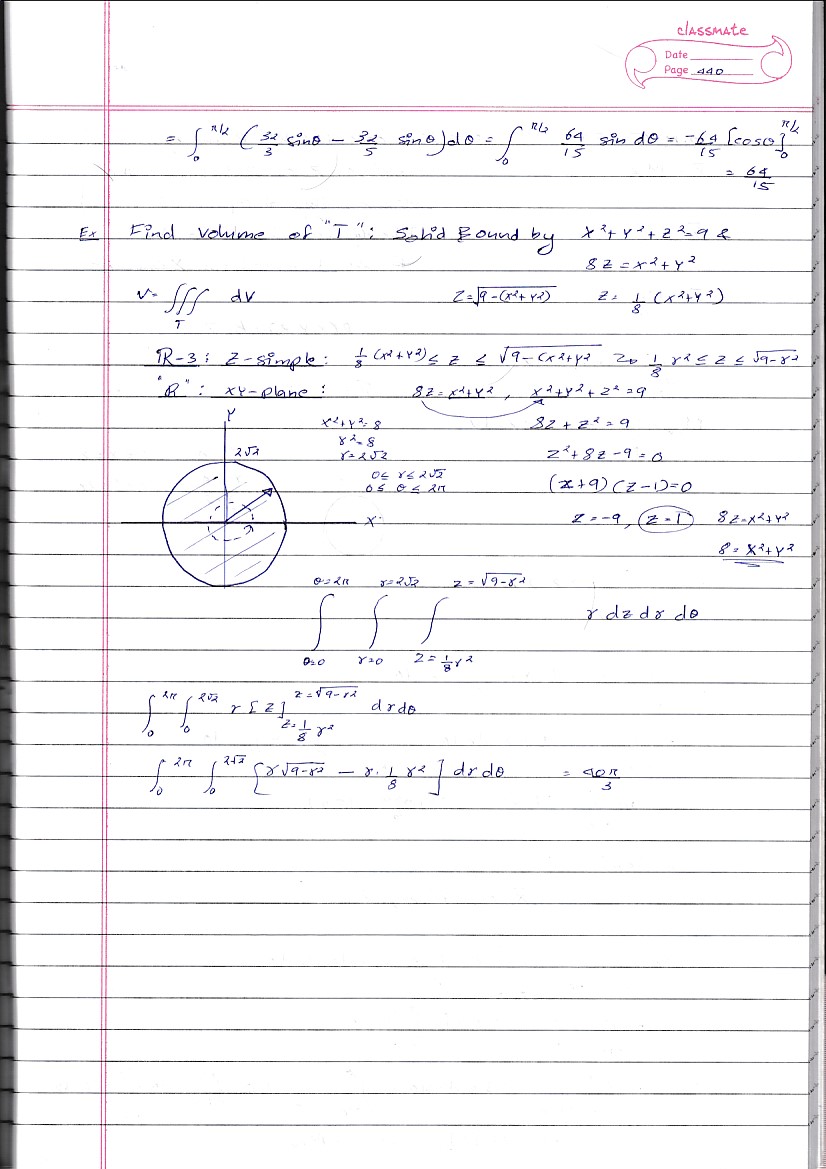 classmate
Date
Page 440
= ∫₀^π/2 (32/3 sinθ − 32/5 sinθ)dθ = ∫₀^π/2 64/15 sin dθ = −64/15 [cosθ]₀^π/2
= 64/15
Ex Find volume of "T": Solid Bound by x²+y²+z²=9 &
8z = x²+y²
V= ∫∫∫_T dV z=√9−(x²+y²) z= 1/8 (x²+y²)
R-3: z-simple: 1/8 (x²+y²) ≤ z ≤ √9−(x²+y² 1/8 r² ≤ z ≤ √9−r²
"R": xy-plane: 8z=x²+y², x²+y²+z²=9
Y x²+y²=8 8z+z²=9
r²=8
2√2 r=2√2 z²+8z−9=0
0≤ r ≤ 2√2
0≤ θ ≤ 2π (z+9)(z−1)=0
X z=−9, z=1 8z=x²+y²
8=x²+y²
θ=2π r=2√2 z=√9−r²
∫ ∫ ∫ r dz dr dθ
θ=0 r=0 z=1/8 r²
∫₀^2π ∫₀^2√2 r [z]_z=1/8 r²^z=√9−r² dr dθ
∫₀^2π ∫₀^2√2 [r√9−r² − r·1/8 r²] dr dθ = 40π/3